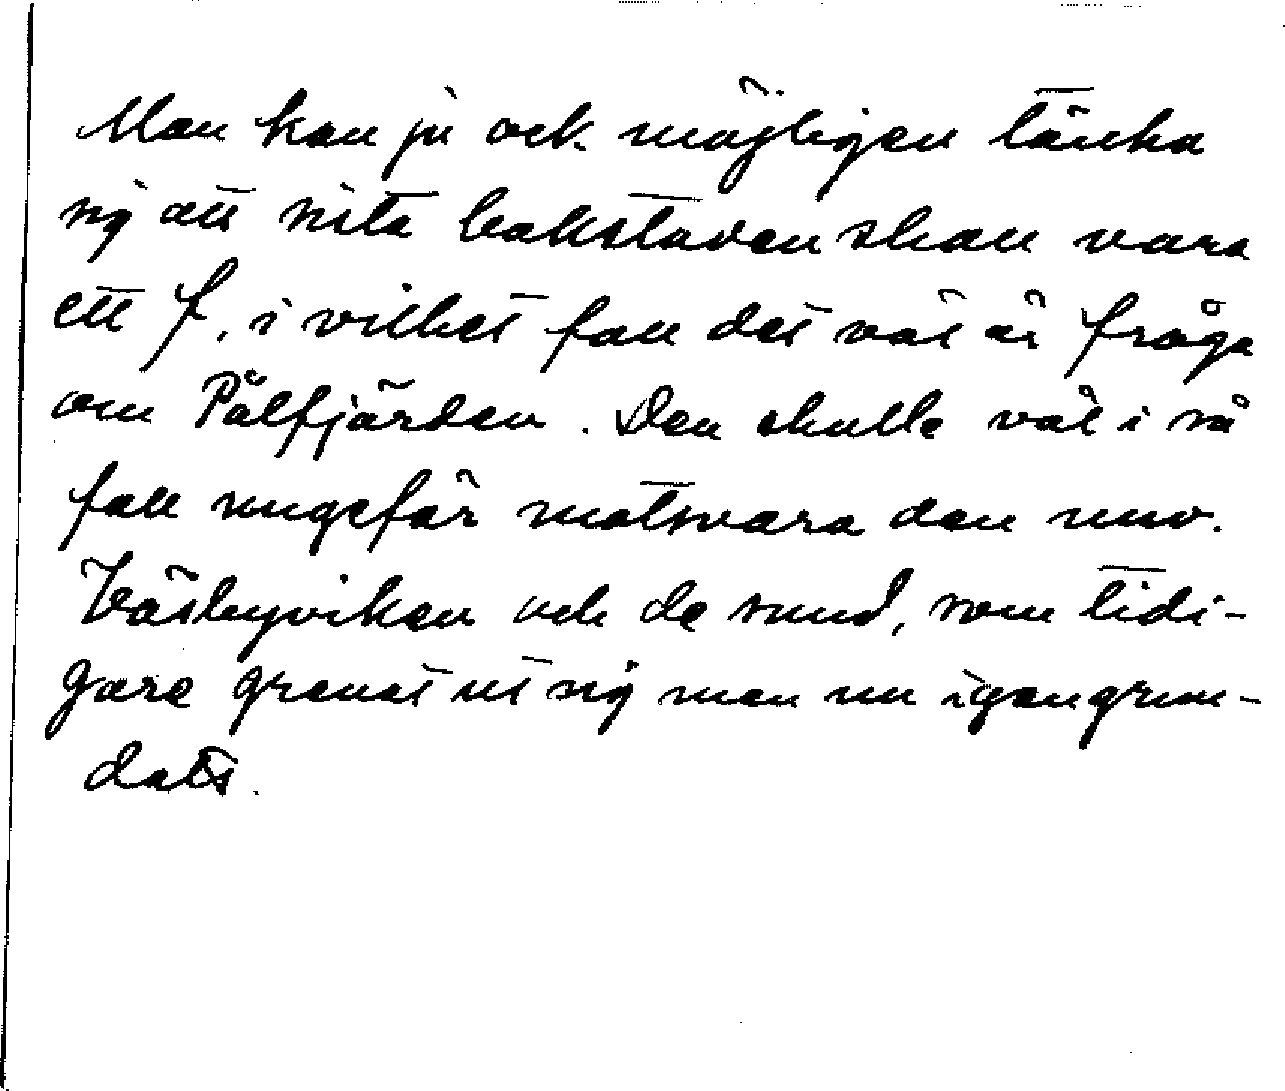 Man kan ju ock möjligen tänka
sig att sista bokstaven skall vara
ett f, i vilket fall det väl är fråga
om Pålfjärden. Den skulle väl i så
fall ungefär motsvara den nuv.
Väsbyviken och de sund, som tidi-
gare grenat ut sig men nu igengrun-
dats.